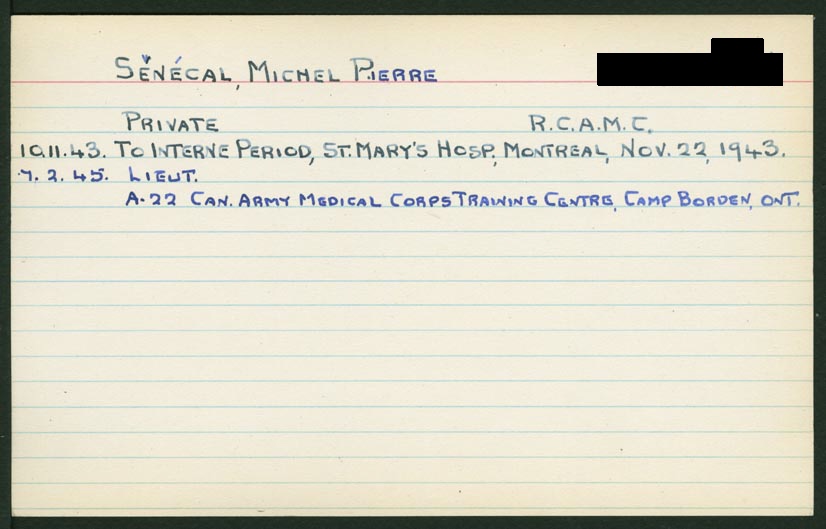 SĚNÉCAL, MICHEL PIERRE
PRIVATE R.C.A.M.C.
10.11.43. TO INTERNE PERIOD, ST. MARY'S HOSP., MONTREAL, NOV. 22, 1943.
7. 2. 45. LIEUT.
A-22 CAN. ARMY MEDICAL CORPS TRAINING CENTRE, CAMP BORDEN, ONT.